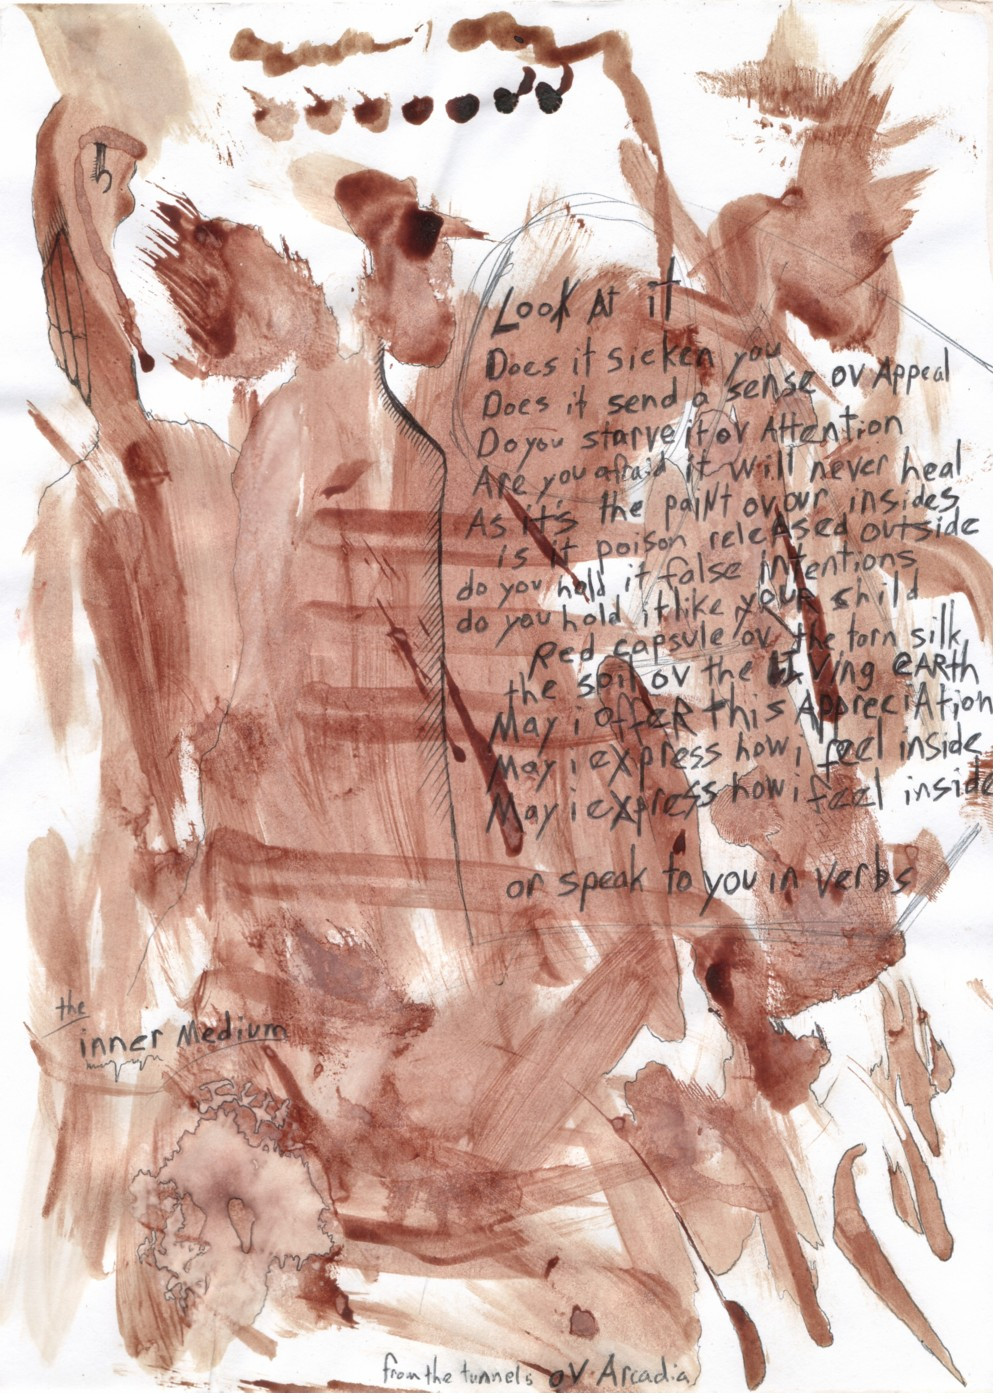 Look At it
Does it sicken you
Does it send a sense ov Appeal
Do you starve it ov Attention
Are you afraid it will never heal
As it's the paiNt ov our insides
is it poison releAsed outside
do you hold it false intentions
do you hold it like YOUR child
Red capsule ov the torn silk
the soil ov the LIVing EARth
May i OffER this AppreciAtion
May i express how i feel inside
May i express how i feel inside
or speak to you in Verbs
the
inner Medium
from the tunnels ov Arcadia